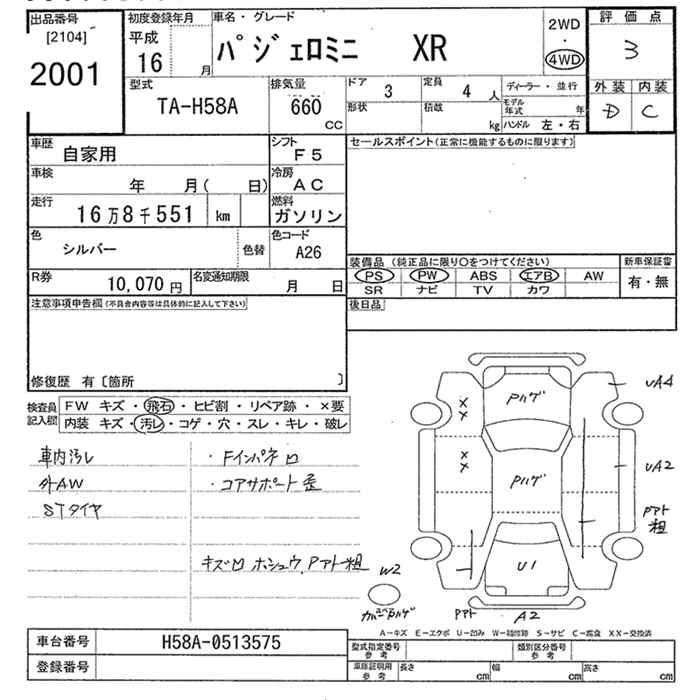 出品番号
[2104]
2001
初度登録年月
平成
16 月
車名・グレード
パジェロミニ XR
2WD
・
4WD
評価点
3
外装 内装
D C
型式
TA-H58A
排気量
660
CC
ドア 3
定員 4 人
形状
積載 kg
ディーラー・並行
モデル年式 年
ハンドル 左・右
車歴 自家用
シフト F5
車検 年 月( 日)
冷房 AC
走行 16万8千551 km
燃料 ガソリン
色 シルバー 色替
色コード A26
R券 10,070 円
名変通知期限 月 日
セールスポイント(正常に機能するものに限ります)
装備品 (純正品に限り〇をつけてください)
PS PW ABS エアB AW
SR ナビ TV カワ
新車保証書
有・無
後日品
注意事項申告欄(不具合内容等は具体的に記入して下さい)
修復歴 有〔箇所 〕
検査員記入欄
FW キズ・飛石・ヒビ割・リペア跡・×要
内装 キズ・汚レ・コゲ・穴・スレ・キレ・破レ
車内汚レ
外AW
STタイヤ
・Fインパネロ
・コアサポート歪
キズロ ホシュウ、Pアト粗
Pハゲ
Pハゲ
U1
UA4
UA2
Pアト粗
W2
Pアト
A2
A-キズ E-エクボ U-凹み W-補修跡 S-サビ C-腐食 XX-交換済
車台番号 H58A-0513575
登録番号
型式指定番号参考
類別区分番号参考
車庫証明用参考 長さ cm 幅 cm 高さ cm